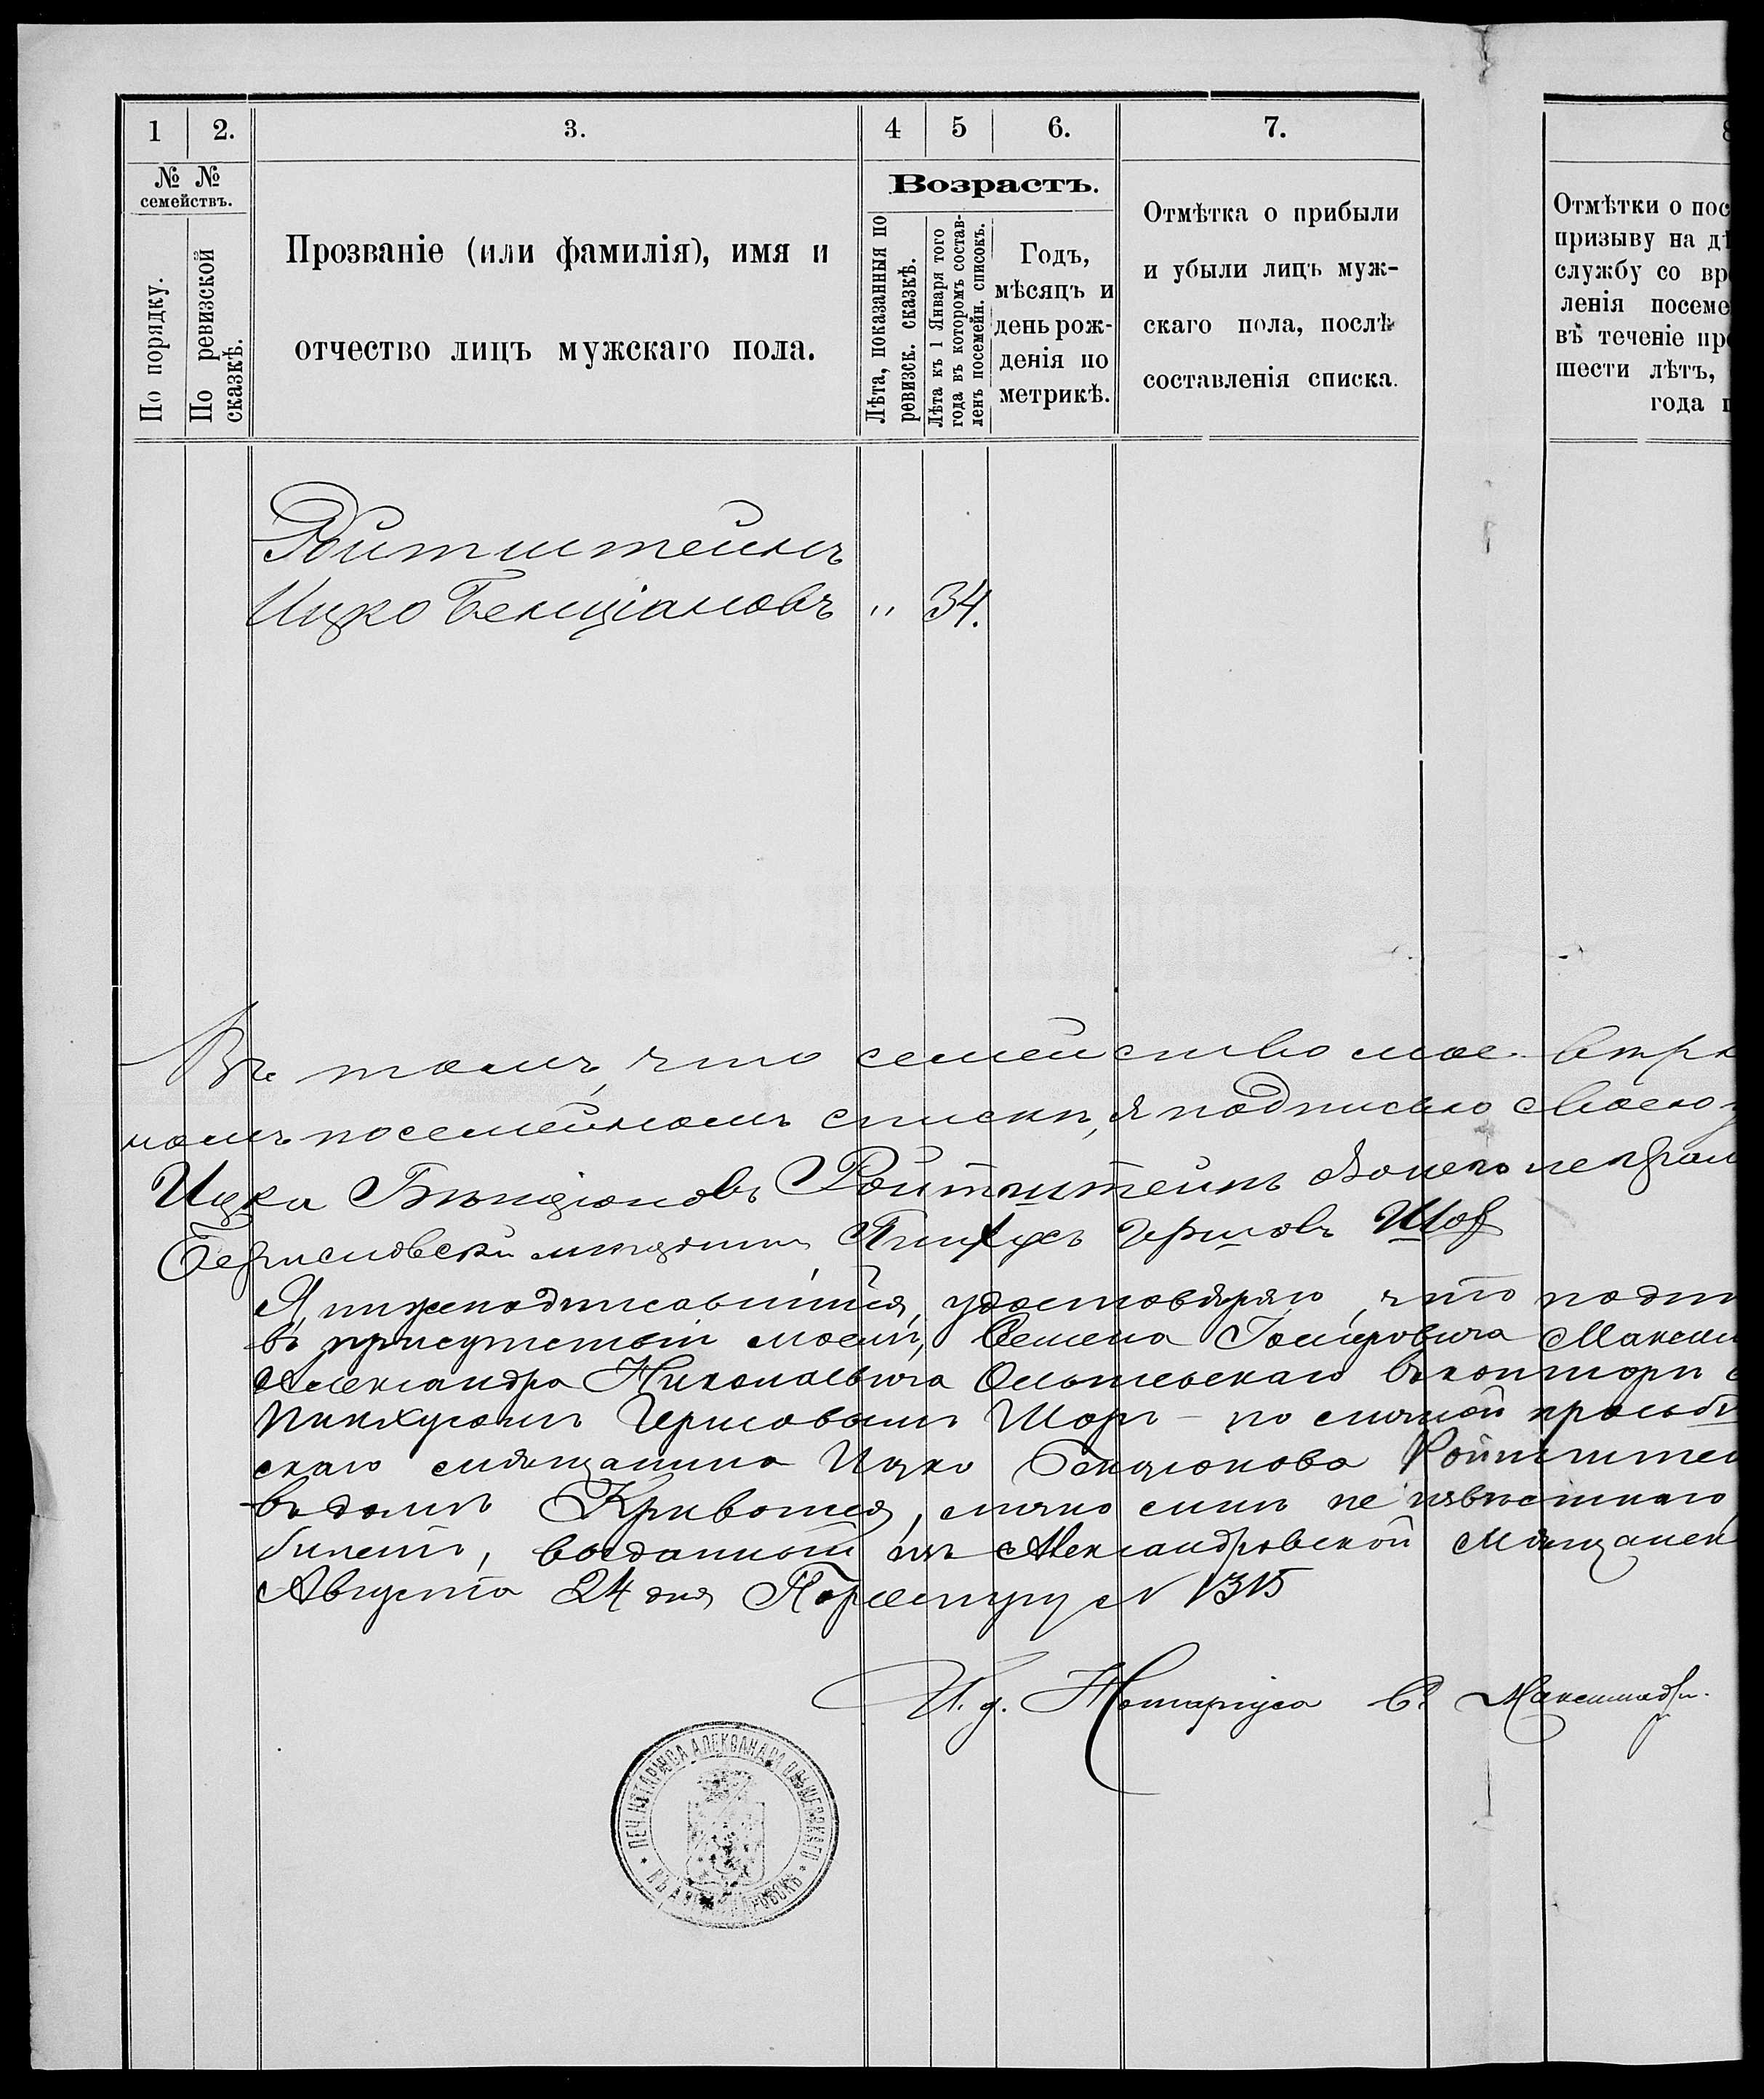 1
2.
3.
4
5
6.
7.
№ №
семействъ.
По порядку.
По ревизской
сказкѣ.
Прозваніе (или фамилія), имя и
отчество лицъ мужскаго пола.
Возрастъ.
Лѣта, показанныя по
ревизск. сказкѣ.
Лѣта къ 1 Января того
года въ которомъ состав-
ленъ посемейн. списокъ.
Годъ,
мѣсяцъ и
день рож-
денія по
метрикѣ.
Отмѣтка о прибыли
и убыли лицъ муж-
скаго пола, послѣ
составленія списка.
Отмѣтки о пос
призыву на дѣ
службу со вр
ленія посеме
въ теченіе пр
шести лѣтъ,
года
Ройтштейнъ
Ицко Бенціановъ " 34.
Въ томъ, что семейство мое
номъ посемейномъ спискѣ, я подписью своею
Ицка Бенціоновъ Ройтштейнъ а
мѣщанинъ Пинхусъ Гершовъ Шор
Я, нижеподписавшійся, удостовѣряю, что подп
въ присутствіи моемъ, Семена Максим
Александра Николаевича Ольшевскаго въ конторѣ
Пинхусомъ Гершовымъ Шоръ - по личной просьбѣ
скаго мѣщанина Ицко Бенціонова Ройтштей
въ домѣ, лично мнѣ не извѣстнаго,
билетъ, выданный изъ Александровской Мѣщанск
Августа 24 дня По реестру N 1315
И. д. Нотаріуса С.
ПЕЧ. НОТАРІУСА АЛЕКСАНДРА ОЛЬШЕВСКАГО * ВЪ АЛЕКСАНДРОВСКѢ *